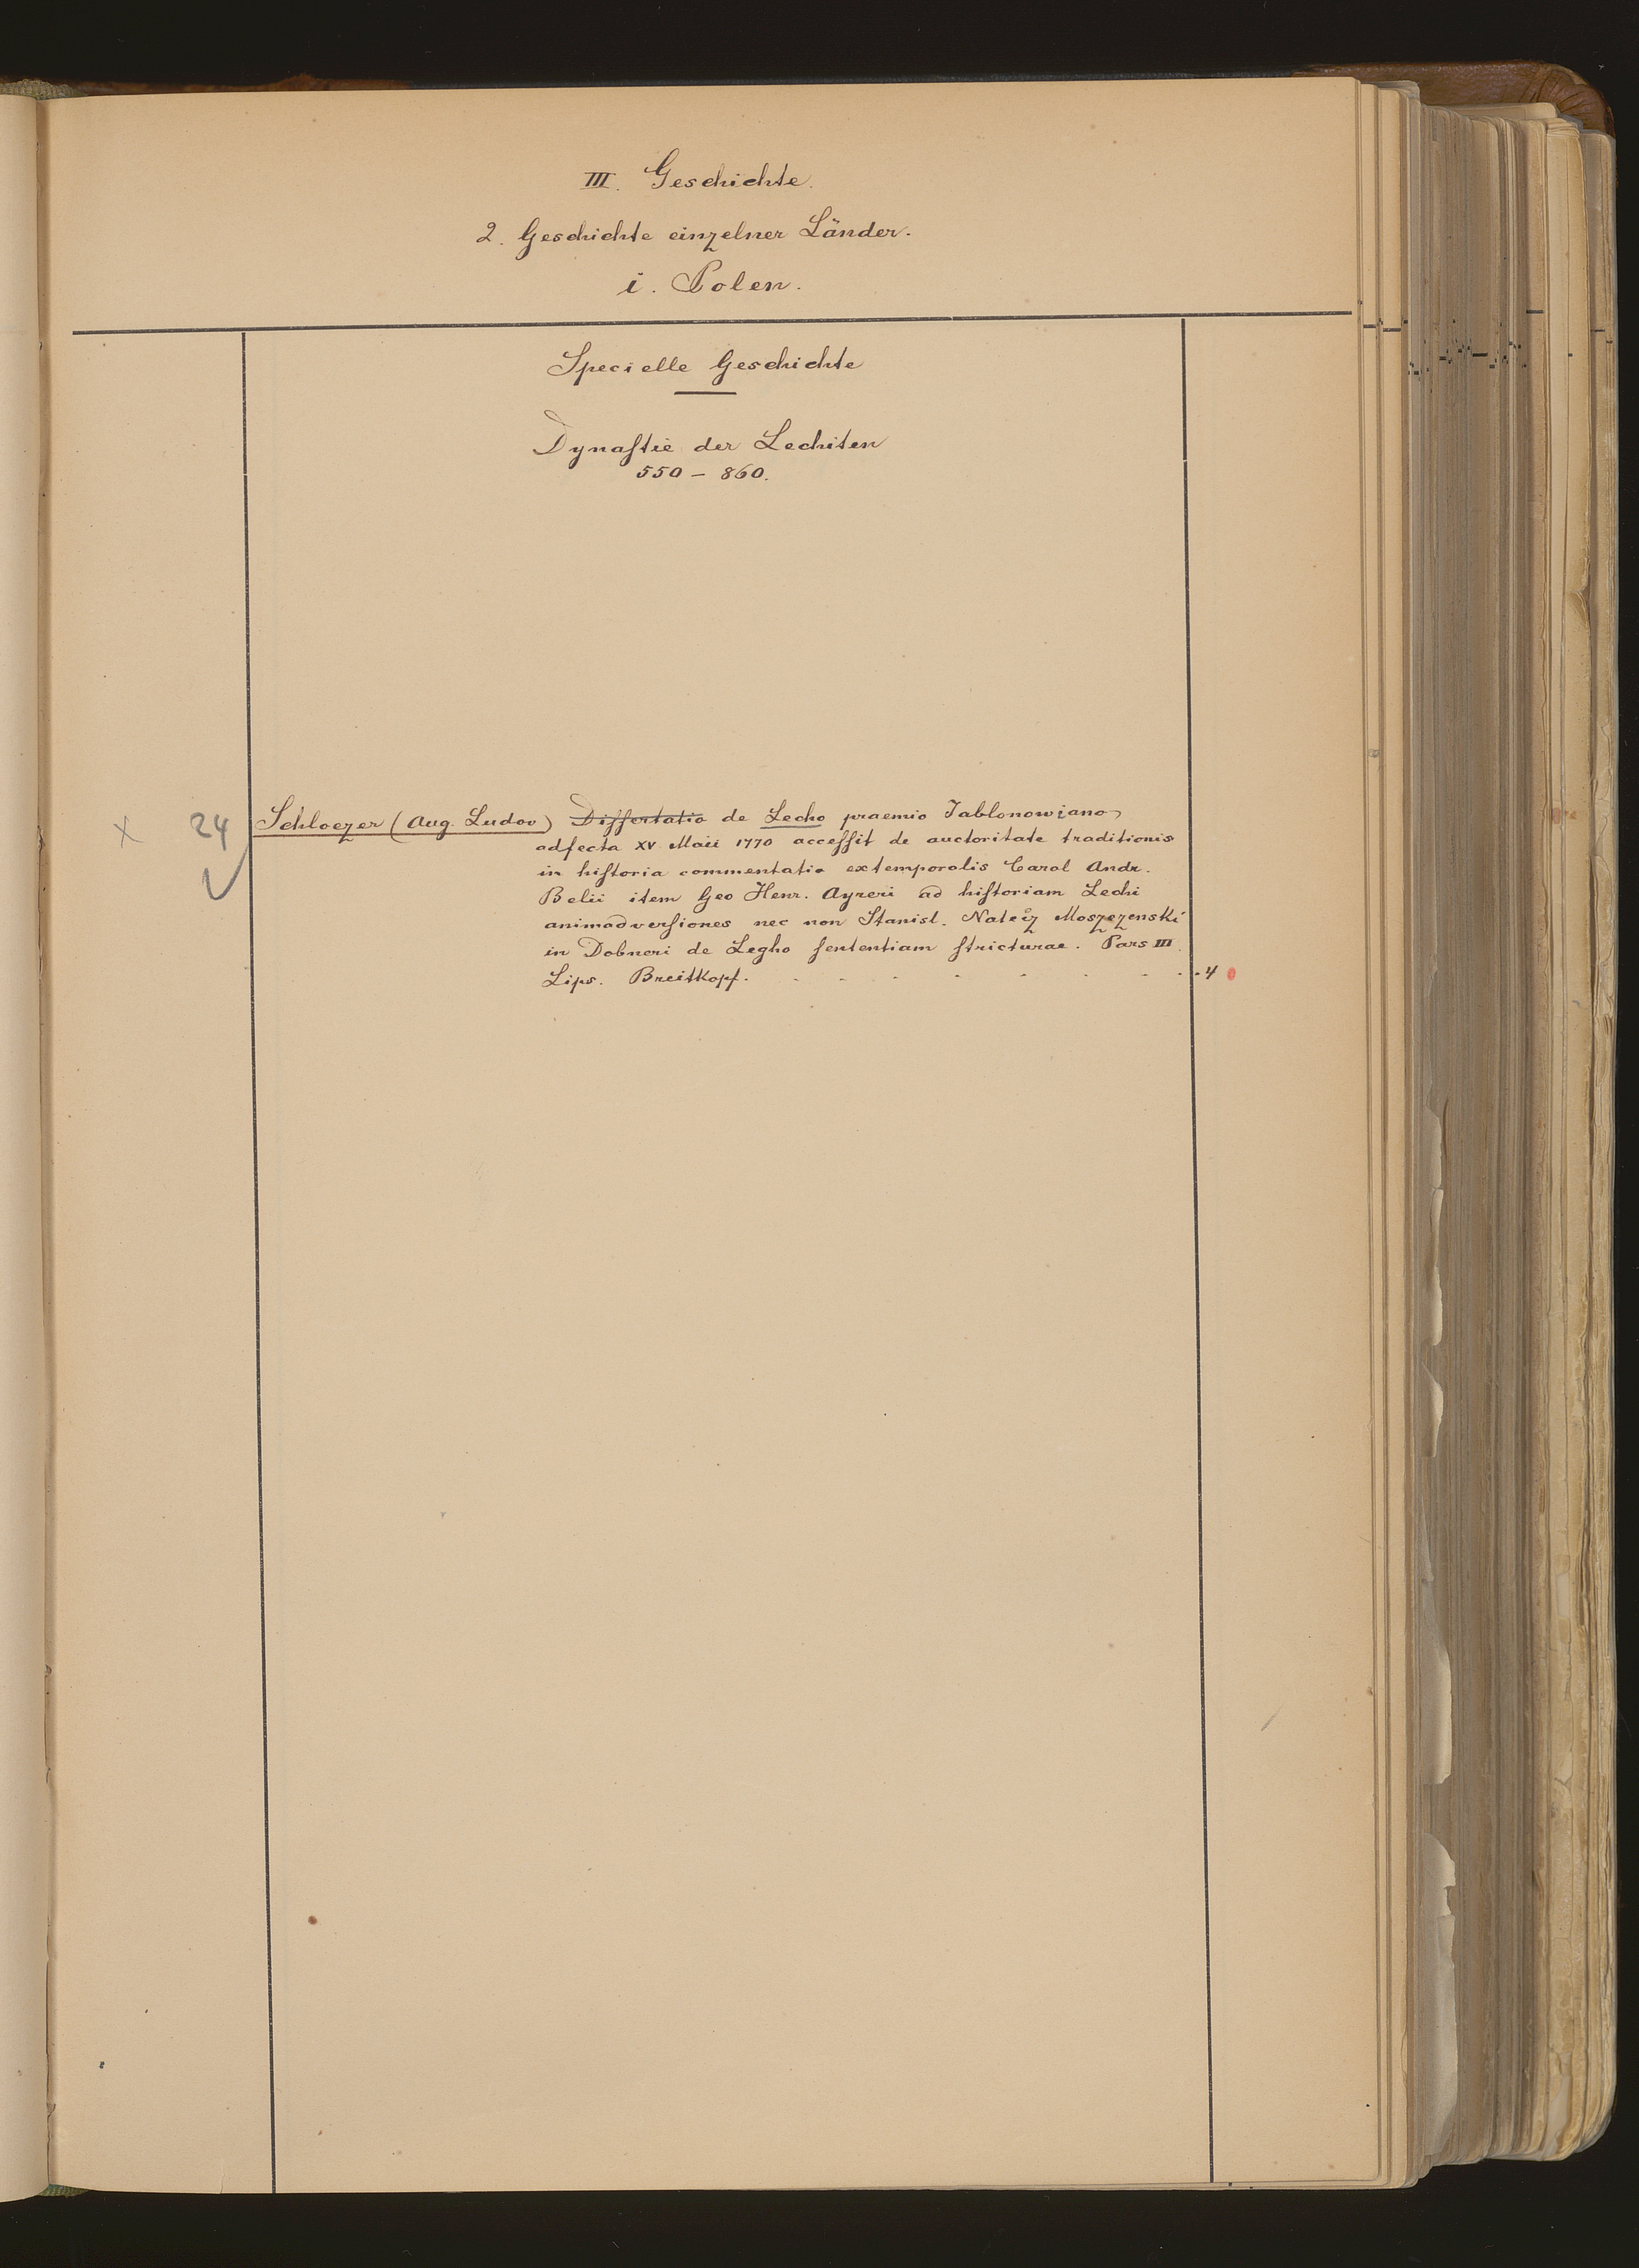 III. Geschichte.
2. Geschichte einzelner Länder.
i. Polen.
Specielle Geschichte
Dynaſtie der Lechiten
550 – 860.
x 24 Schloezer (Aug. Ludov) Diſſertatio de Lecho praemio Jablonowiano
adfecta XV Maii 1770 acceſſit de auctoritate traditionis
in hiſtoria commentatio extemporalis Carol Andr.
Belii item Geo Henr. Ayreri ad hiſtoriam Lechi
animadverſiones nec non Stanisl. Moszczenski
in Dobneri de Legho ſententiam ſtricturae. Pars III.
Lips. Breitkopf. . . . . . . . . 4